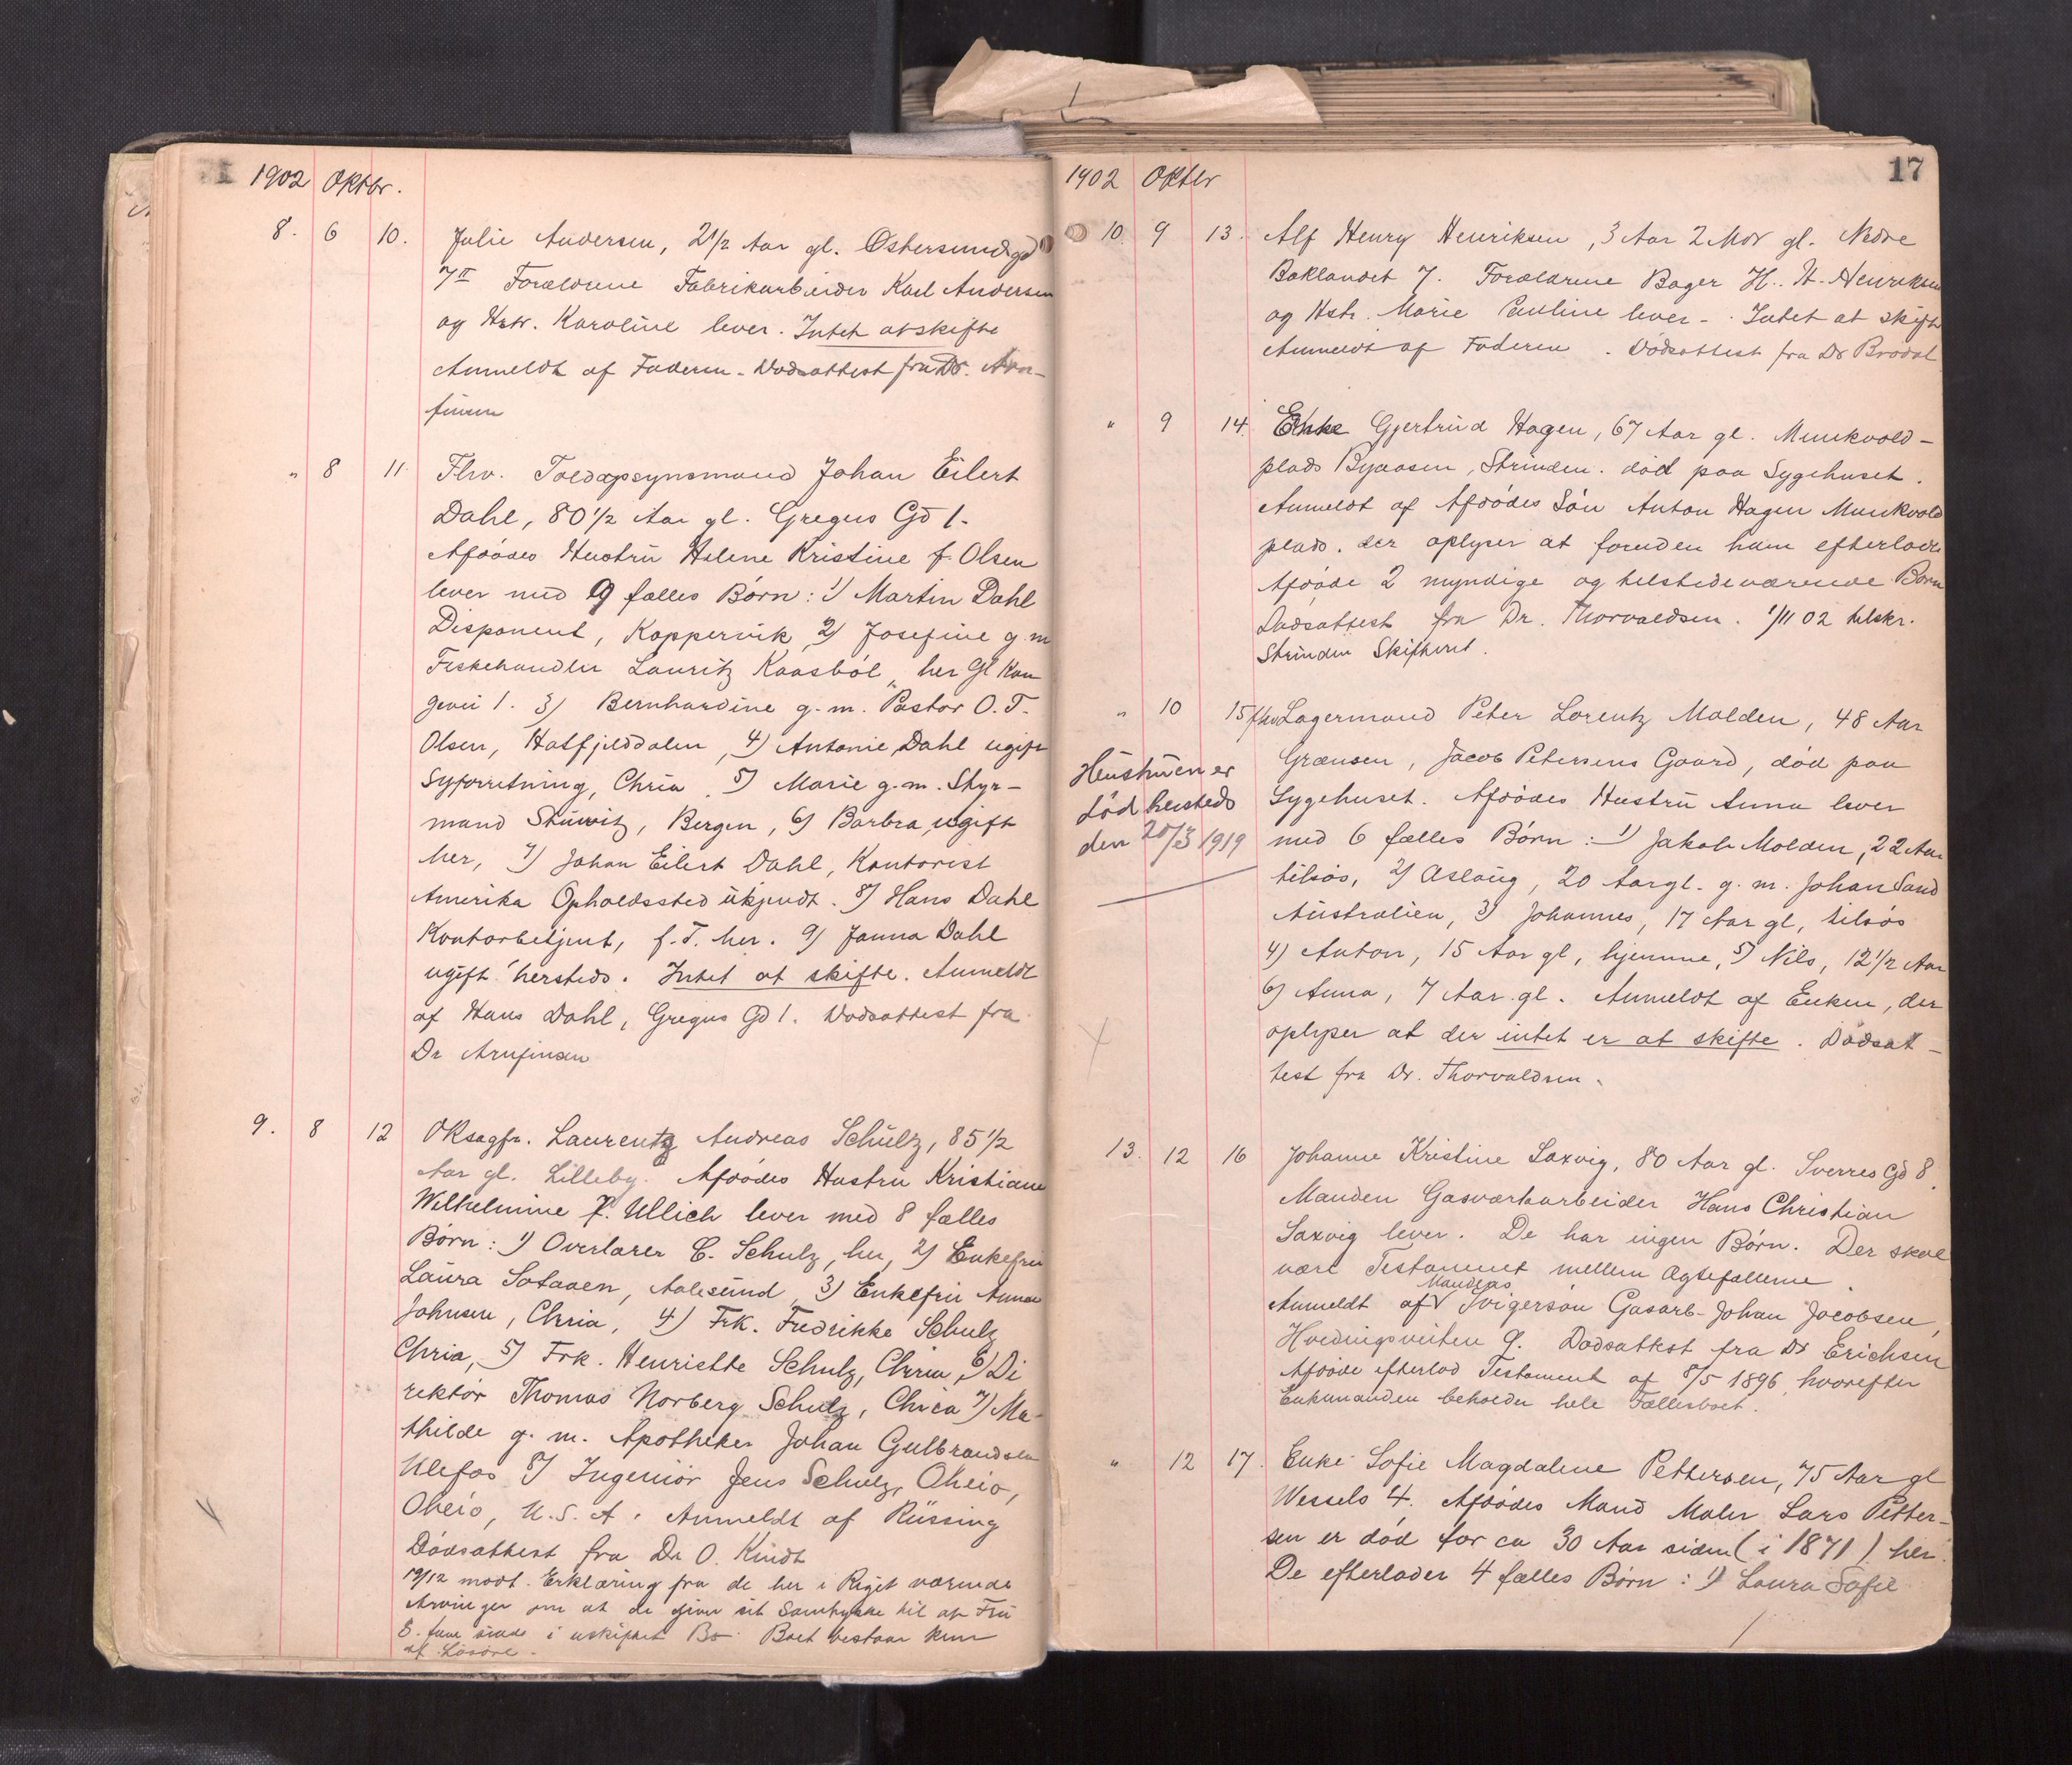 1902 Oktbr.
8. 6 10. Julie Andersen, 2 1/2 Aar gl. Østersundsgd
7 II Forældrene Fabrikarbeider Karl Andersen
og Hstr. Karoline lever. Intet at skifte
Anmeldt af Faderen. Dødsattest fra Dr. Arn-
finsen
" 8 11. Fhv. Toldopsynsmand Johan Eilert
Dahl, 80 1/2 Aar gl. Gregus Gd 1.
Afdødes Hustru Helene Kristine f. Olsen
lever med 9 fælles Børn: 1) Martin Dahl
Disponent, Koppervik, 2) Josefine g. m
Fiskehandler Lauritz Kaasbøl, her Gl Kon
gevei 1. 3) Bernhardine g. m. Pastor O. T.
Olsen, Hatfjelddalen, 4) Antonie Dahl ugift
Syforretning, Chria. 5) Marie g. m. Styr-
mand Stuwitz, Bergen, 6) Barbra, ugift
her, 7) Johan Eilert Dahl, Kontorist
Amerika Opholdssted ukjendt. 8) Hans Dahl
Kontorbetjent, f. T. her. 9) Janna Dahl
ugift hersteds. Intet at skifte. Anmeldt
af Hans Dahl, Gregus Gd 1. Dødsattest fra
Dr Arnfinsen
9. 8 12 OKsagfr. Laurentz Andreas Schulz, 85 1/2
Aar gl. Lilleby. Afdødes Hustru Kristiane
Wilhelmine f. Ullich lever med 8 fælles
Børn: 1) Overlærer C. Schulz, her, 2) Enkefru
Laura Sataaen, Aalesund, 3) Enkefru Anna
Johnsen, Chria, 4) Frk. Fredrikke Schulz
Chria, 5) Frk. Henriette Schulz, Chria, 6) Di
rektør Thomas Norberg Schulz, Chria 7) Ma-
thilde g. m. Apotheker Johan Gulbrandsen
Ulefos 8) Ingeniør Jens Schulz, Oheio,
Oheio, U. S. A. Anmeldt af Rüssing
Dødsattest fra Dr O. Kindt
19/12 modt. Erklæring fra de her i Riget værende
Arvinger om at de giver sit Samtykke til at Fru
S. faar sidde i uskiftet Bo. Boet bestaar kun
af Løsøre.
1902 Oktbr
17
10. 9 13. Alf Henry Henriksen, 3 Aar 2 Mdr gl. Nedre
Baklandet 7. Forældrene Bager H. H. Henriksen
og Hstr. Marie Pauline lever. Intet at skifte
Anmeldt af Faderen. Dødsattest fra Dr Brodal
" 9 14. Enke Gjertrud Hagen, 67 Aar gl. Munkvold-
plads Byaasen, Strinden. død paa Sygehuset.
Anmeldt af Afdødes Søn Anton Hagen Munkvold
plads. der oplyser at foruden ham efterlader
Afdøde 2 myndige og tilstedeværende Børn
Dødsattest fra Dr. Thorvaldsen. 1/11 02 tilskr.
Strinden Skifteret.
" 10 15 fhv Lagermand Peter Lorentz Molden, 48 Aar
Grænsen, Jacob Petersens Gaard, død paa
Sygehuset. Afdødes Hustru Anna lever
med 6 fælles Børn: 1) Jakob Molden, 22 Aar
tilsøs, 2) Aslaug, 20 Aar gl. g. m. Johan Sand
Australien, 3) Johannes, 17 Aar gl, tilsøs
4) Anton, 15 Aar gl, hjemme, 5) Nils, 12 1/2 Aar
6) Anna, 7 Aar gl. Anmeldt af Enken, der
oplyser at der intet er at skifte. Dødsat-
test fra Dr. Thorvaldsen.
Hustruen er
død hersteds
den 25/3 1919
13. 12 16 Johanne Kristine Saxvig, 80 Aar gl. Sverres Gd 8.
Manden Gasværkarbeider Hans Christian
Saxvig lever. De har ingen Børn. Der skal
være Testament mellem Ægtefællerne.
Anmeldt af Mandens Svigersøn Gasarb. Johan Jacobsen,
Hvedingsveiten 9. Dødsattest fra Dr Erichsen
Afdøde efterlod Testament af 8/5 1896, hvorefter
Enkemanden beholder hele Fællesboet.
" 12 17. Enke Sofie Magdalene Pettersen, 75 Aar gl
Wessels 4. Afdødes Mand Maler Lars Petter-
sen er død for ca 30 Aar siden (i 1871) her.
De efterlader 4 fælles Børn: 1) Laura Sofie